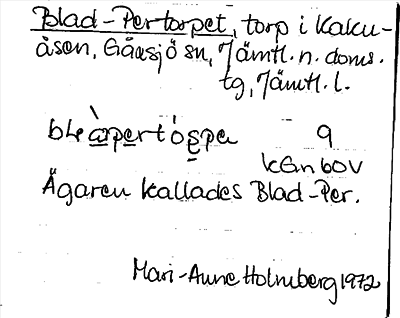 Blad-Pertorpet, torp i Kaku-
åsen, Gåxsjö sn, Jämtl. n. doms.
tg, Jämtl. l.
9
Ägaren kallades Blad-Per.
Mari-Anne Holmberg 1972